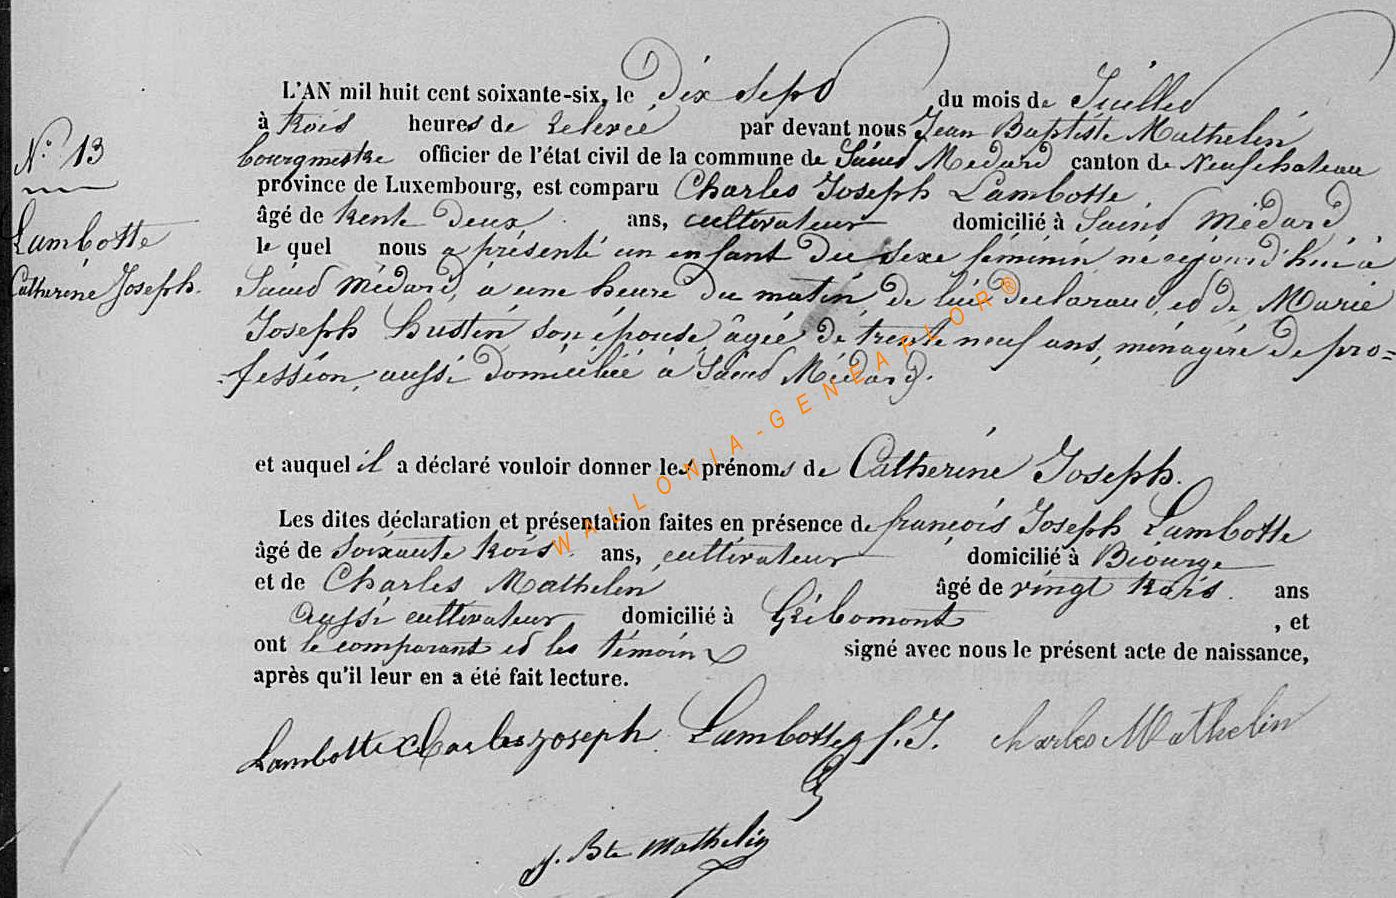 L'AN mil huit cent soixante-six, le dix sept du mois de Juillet
à trois heures de relevée par devant nous Jean Baptiste Mathelin
N.° 13
bourgmestre officier de l'état civil de la commune de Saint Médard canton de Neufchateau
province de Luxembourg, est comparu Charles Joseph Lambotte
âgé de trente deux ans, cultivateur domicilié à Saint Médard
Lambotte
Catherine Joseph.
le quel nous a présenté un enfant du sexe féminin né aujourd'hui à
Saint Médard, à une heure du matin de lui déclarant, et de Marie
Joseph Hustin son épouse âgée de trente neuf ans, ménagère de pro=
fession, aussi domiciliée à Saint Médard.
et auquel il a déclaré vouloir donner les prénoms de Catherine Joseph.
Les dites déclaration et présentation faites en présence de françois Joseph Lambotte
âgé de soixante trois ans, cultivateur domicilié à Biourge
et de Charles Mathelin âgé de vingt trois. ans
aussi cultivateur domicilié à Gribomont , et
ont le comparant et les témoins signé avec nous le présent acte de naissance,
après qu'il leur en a été fait lecture.
Lambotte Charles joseph Lambotte f. J. charles Mathelin
J. Bte Mathelin
WALLONIA-GENEAFLOR®